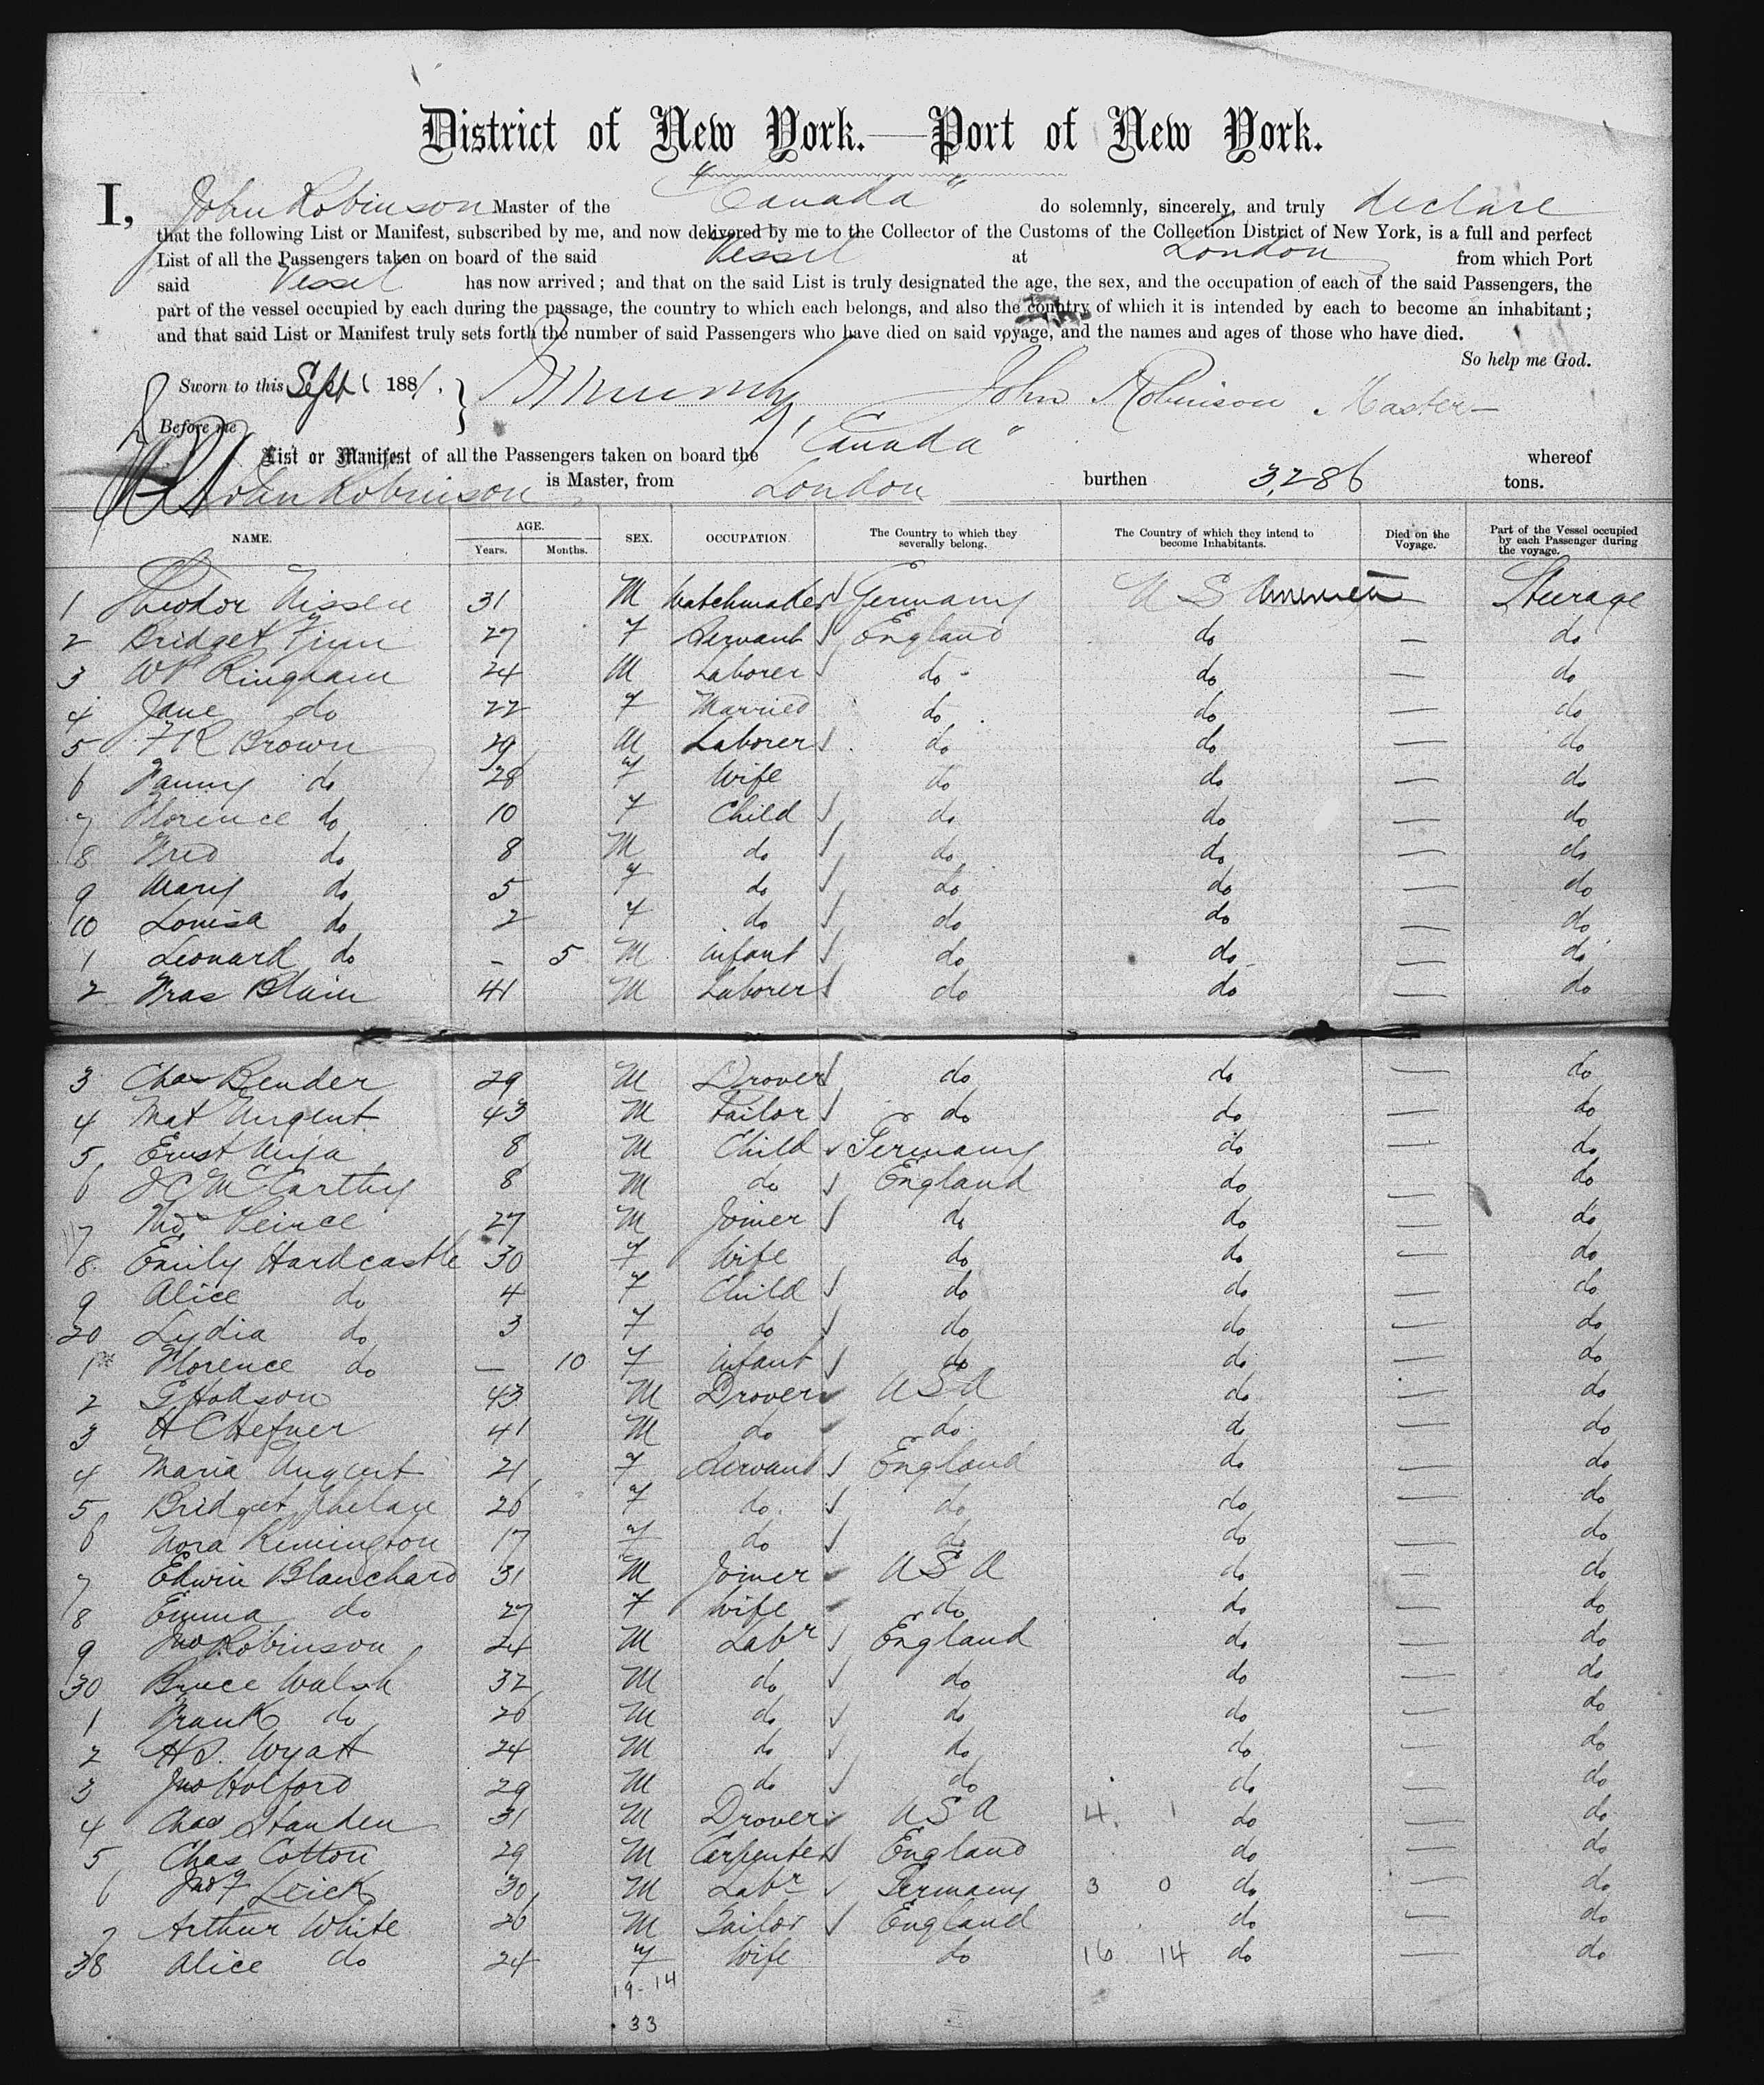 District of New York.—Port of New York.
I, John Robinson Master of the "Canada" do solemnly, sincerely, and truly declare
that the following List or Manifest, subscribed by me, and now delivered by me to the Collector of the Customs of the Collection District of New York, is a full and perfect
List of all the Passengers taken on board of the said Vessel at London from which Port
said Vessel has now arrived; and that on the said List is truly designated the age, the sex, and the occupation of each of the said Passengers, the
part of the vessel occupied by each during the passage, the country to which each belongs, and also the country of which it is intended by each to become an inhabitant;
and that said List or Manifest truly sets forth the number of said Passengers who have died on said voyage, and the names and ages of those who have died.
So help me God.
Sworn to this Sept 1 1881. John Robinson Master
Before me
List or Manifest of all the Passengers taken on board the "Canada" whereof
John Robinson is Master, from London burthen 3,286 tons.
NAME. AGE. Years. Months. SEX. OCCUPATION. The Country to which they severally belong. The Country of which they intend to become Inhabitants. Died on the Voyage. Part of the Vessel occupied by each Passenger during the voyage.
1 Theodor Nissen 31 M Watchmaker Germany U S America — Steerage
2 Bridget Finn 27 F Servant England do — do
3 WP Ringham 24 M Laborer do do — do
4 Jane do 22 F Married do do — do
5 FR Brown 29 M Laborer do do — do
6 Fanny do 28 F Wife do do — do
7 Florence do 10 F Child do do — do
8 Fred do 8 M do do do — do
9 Mary do 5 F do do do — do
10 Louisa do 2 F do do do — do
1 Leonard do - 5 M infant do do — do
2 Fras Blain 41 M Laborer do do — do
3 Chas Bender 29 M Drover do do — do
4 Mat Nugent 43 M Tailor do do — do
5 Ernst 8 M Child Germany do — do
6 J C McCarthy 8 M do England do — do
7 Thos Peirce 27 M Joiner do do — do
8 Emily Hardcastle 30 F Wife do do — do
9 Alice do 4 F Child do do — do
20 Lydia do 3 F do do do — do
1 Florence do — 10 F infant do do — do
2 G Hodson 43 M Drover U S A do — do
3 H C Hefner 41 M do do do — do
4 Maria Nugent 21 F Servant England do — do
5 Bridget Phelan 26 F do do do — do
6 Nora Rimington 17 F do do do — do
7 Edwin Blanchard 31 M Joiner U S A do — do
8 Emma do 27 F Wife do do — do
9 Jno Robinson 24 M Labr England do — do
30 Bruce Walsh 32 M do do do — do
1 Frank do 26 M do do do — do
2 Wyatt 24 M do do do — do
3 Jno Holford 29 M do do do — do
4 Chas Standen 31 M Drover U S A 4. 1 do — do
5 Chas Cotton 29 M Carpenter England do — do
6 Jno F Leick 30 M Labr Germany 3 0 do — do
7 Arthur White 26 M Tailor England do — do
38 Alice do 24 F Wife do 16 14 do — do
19-14
33